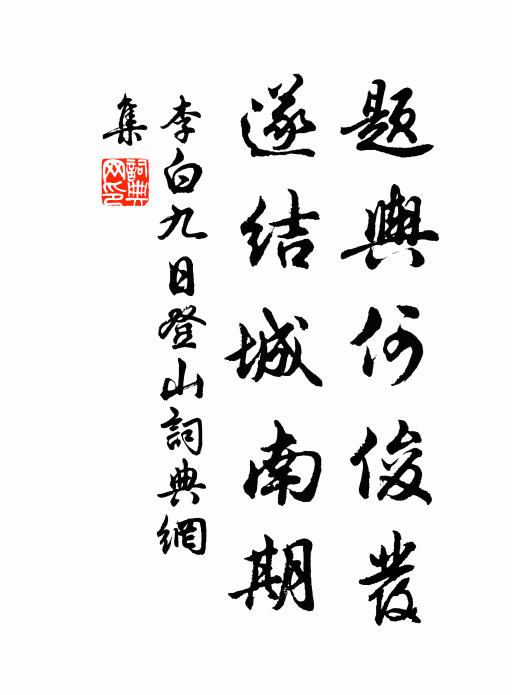 題輿何俊發
遂結城南期
李白九日登山詞典網
集
詞典網印